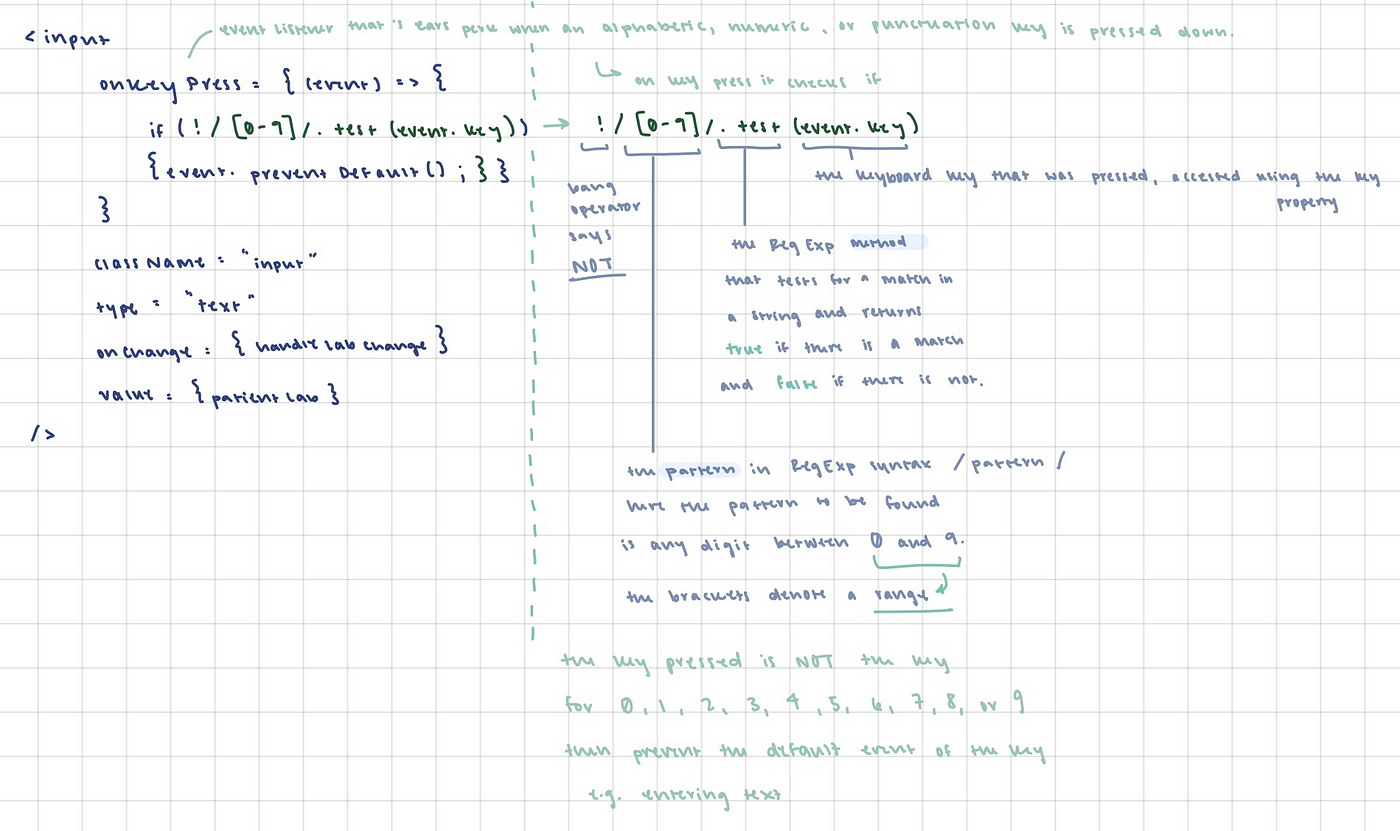 event listener that's ears perk when an alphabetic, numeric, or punctuation key is pressed down.
< input
onKeyPress = { (event) => {
if ( ! / [0-9] / . test (event. key) )
{ event. prevent Default () ; } }
}
className = "input"
type = "text"
onChange = { handle Lab Change }
value = { patient Lab }
/ >
on key press it checks if
! / [0-9] / . test (event. key)
bang
operator
says
NOT
the keyboard key that was pressed, accessed using the key
property
the RegExp method
that tests for a match in
a string and returns
true if there is a match
and false if there is not.
the pattern in RegExp syntax / pattern /
here the pattern to be found
is any digit between 0 and 9.
the brackets denote a range
the key pressed is NOT the key
for 0, 1, 2, 3, 4, 5, 6, 7, 8, or 9
then prevent the default event of the key
e.g. entering text